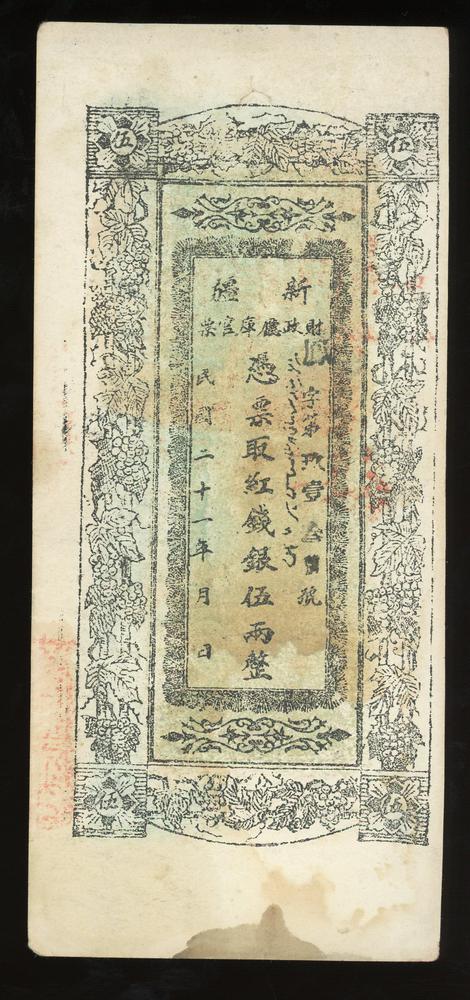 伍
伍
新疆
財政廳庫官票
字第玖壹叁號
憑票取紅錢銀伍兩整
民國二十一年月日
伍
伍